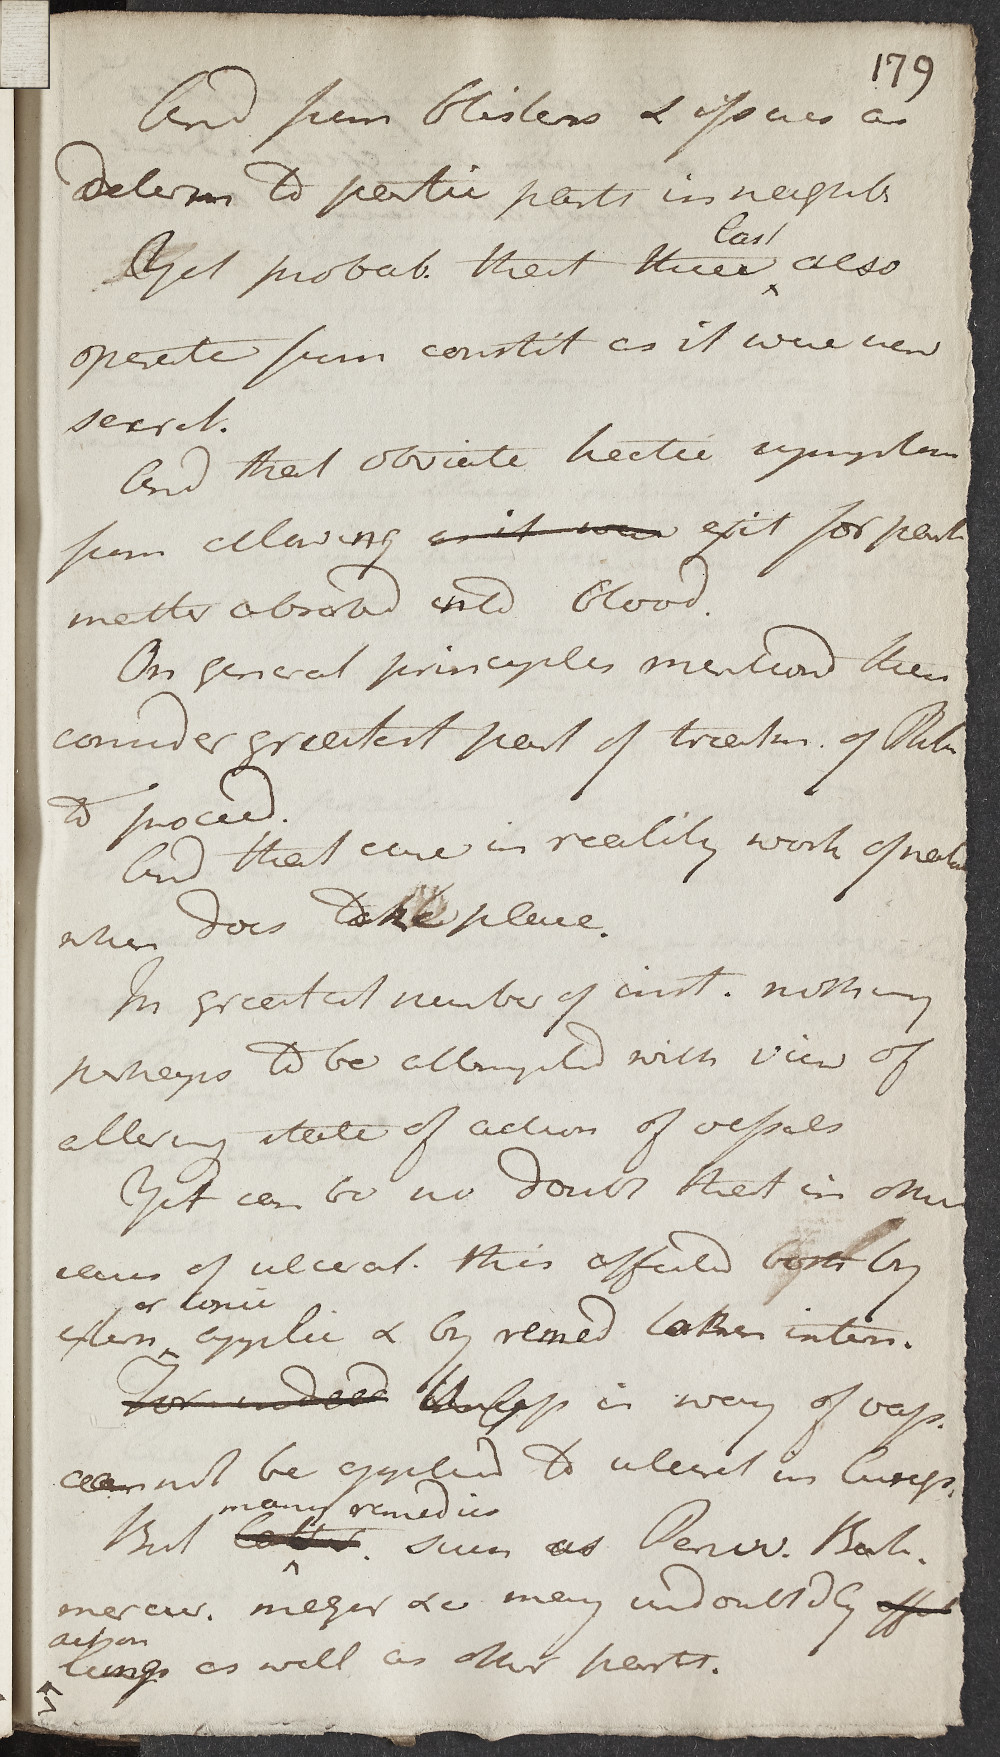 179
And from blisters & issues as
determ to partic parts in neighb
Yet probab. that these last also
operate from constit as it were new
secret.
And that obviate hectic symptom
from allowing as it were exit for
matter absorbd into blood.
On general principles mentiond then
consider greatest part of treatm. of
to proceed.
And that cure in reality work of natu
when does take place.
In greatest number of inst. nothing
perhaps to be attempted with view of
altering state of action of vessels
Yet can be no doubt that in other
cases of ulcerat. this affected both by
or tonic
extern applic & by remed taken intern.
For indeed Unless in way of vap.
can not be applied to ulcerat in lungs.
many remedies
But latter. such as Peruv. Bark.
mercur. mezer &c may undoubtdly affect
act on
lungs as well as other parts.